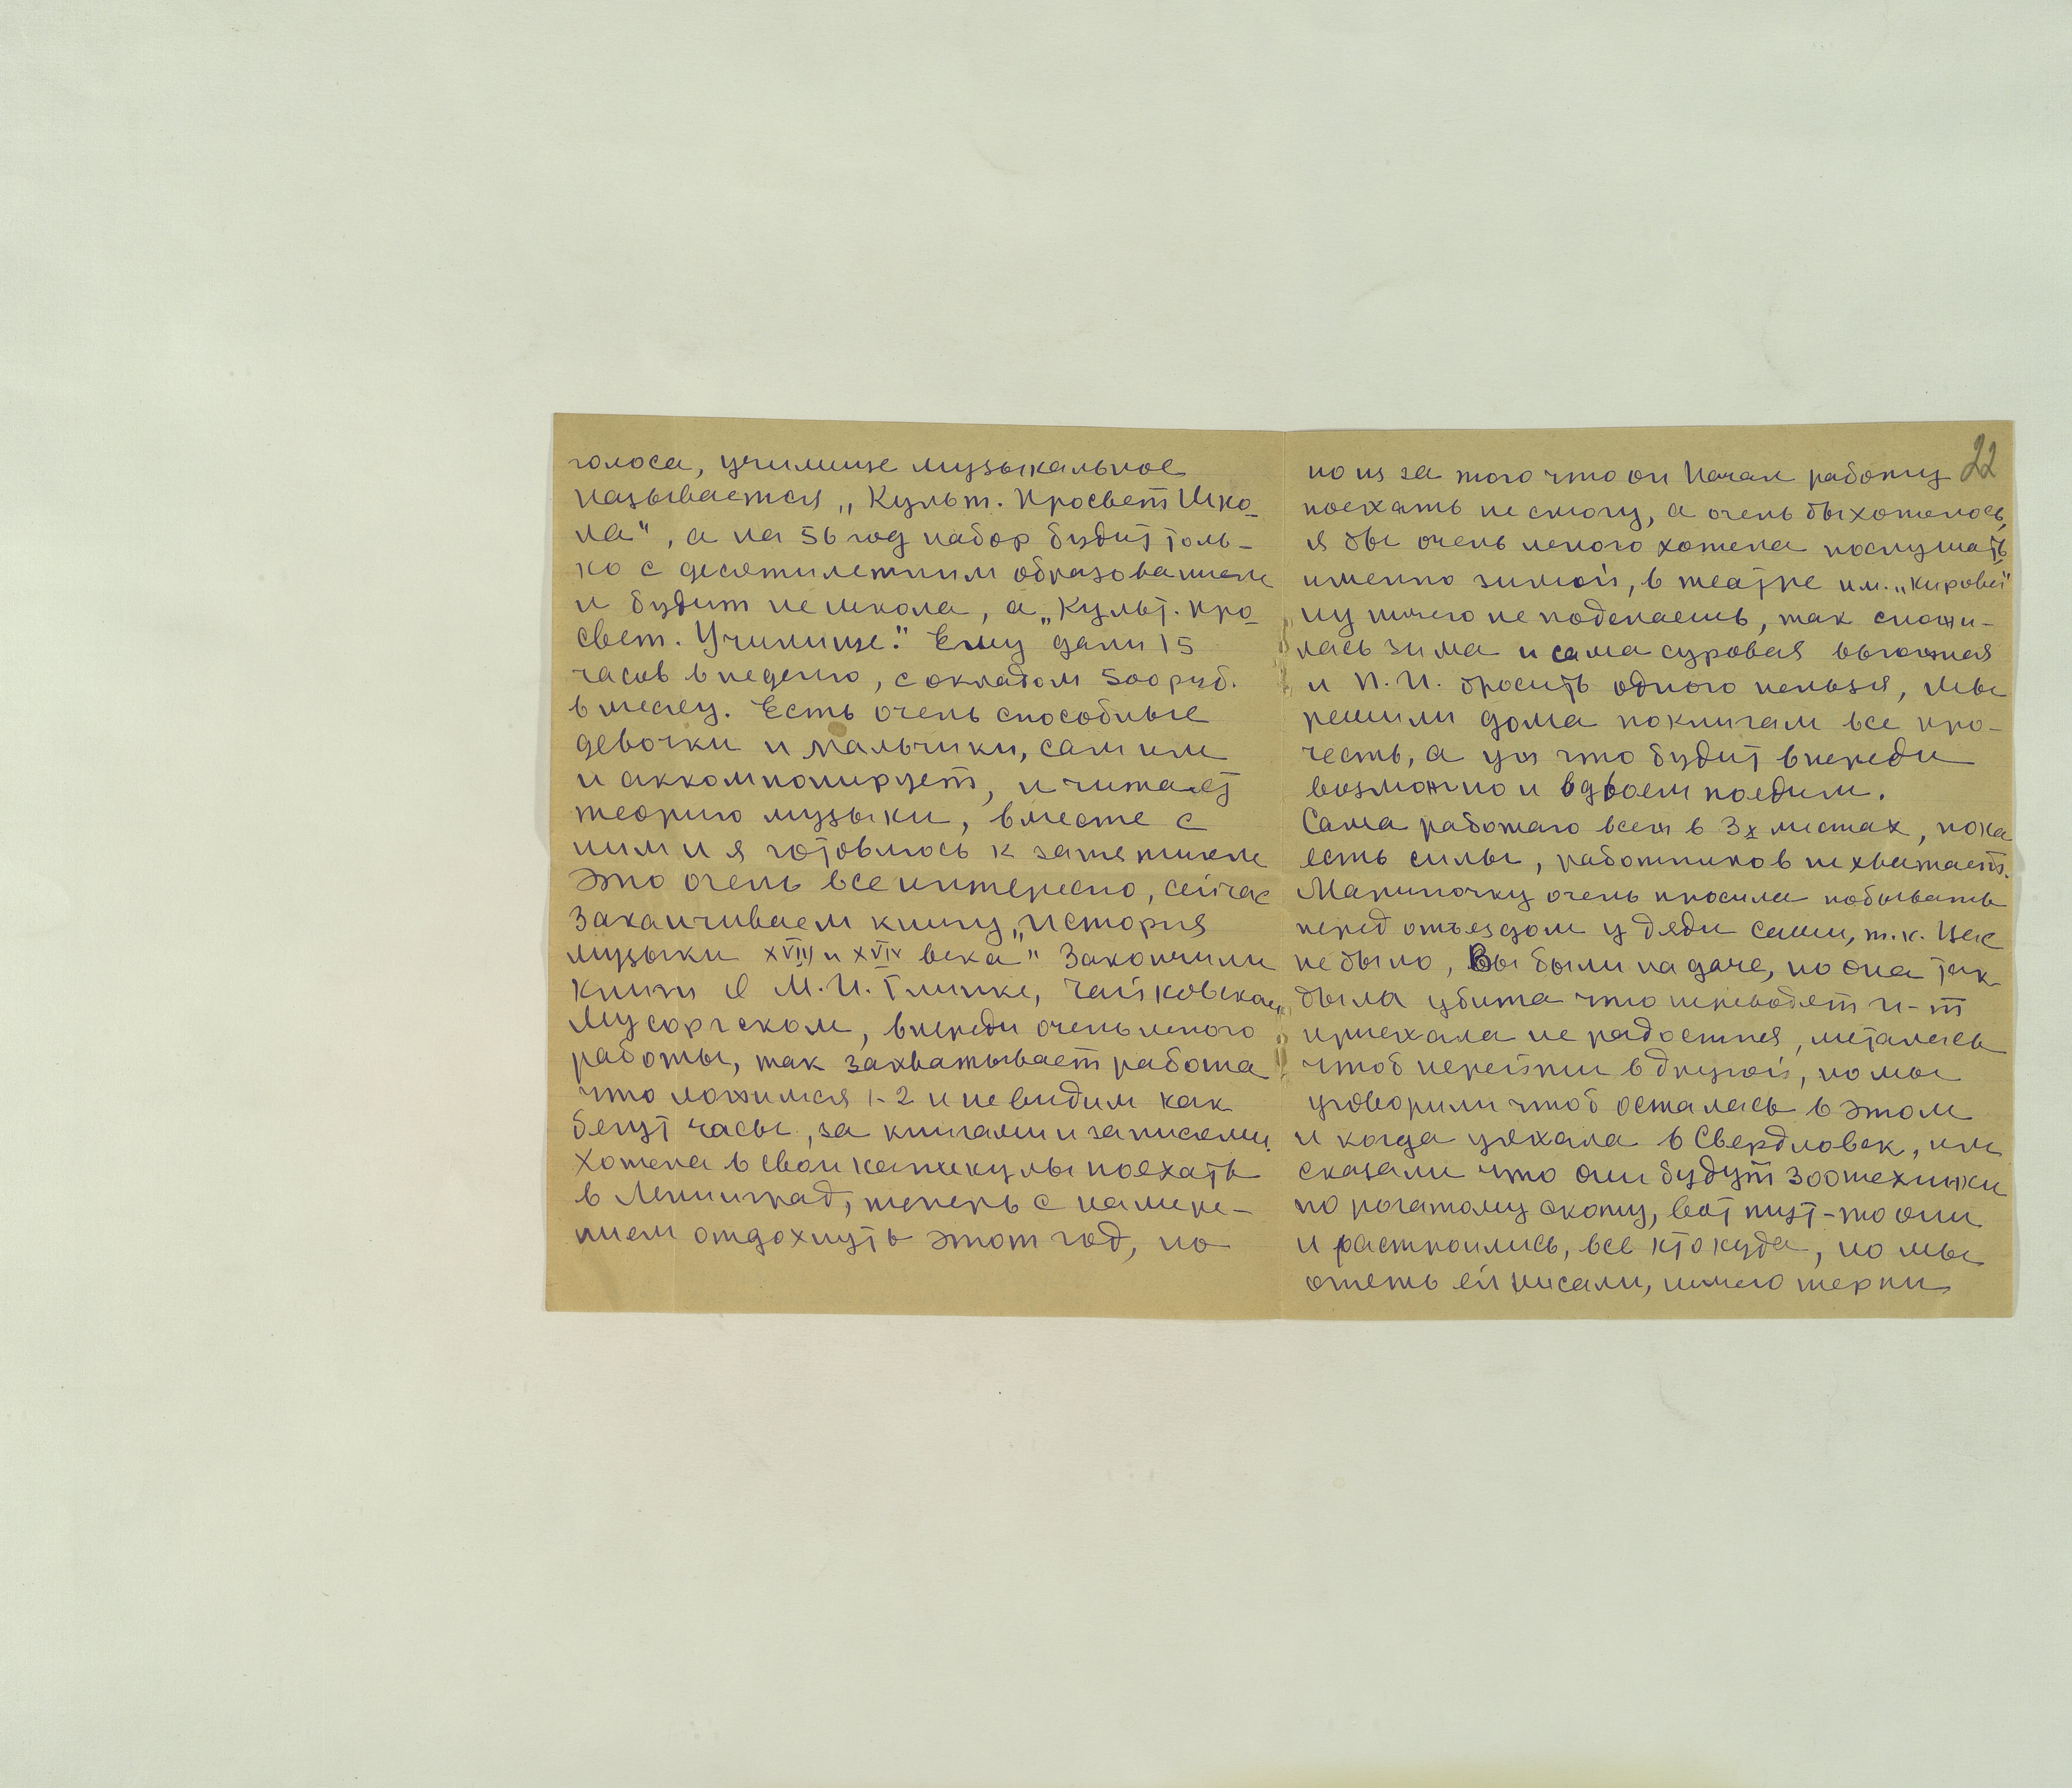 голоса, училище музыкальное
называется „Культ. Просвет Шко-
ла", а на 56 год набор будит толь-
ко с десятилетним образованием
и будит не школа, а „Культ. Про-
свет. Училище." Ему дали 15
часов в неделю, с окладом 500 руб.
в месяц. Есть очень способные
девочки и мальчики, сам им
и аккомпонирует, и читает
теорию музыки, вместе с
ним и я готовлюсь к занятиям
это очень все интересно, сейчас
заканчиваем книгу „История
музыки XVIII и XVIV века" Закончили
книги о М.И. Глинке, Чайковском,
Мусоргском, впереди очень много
работы, так захватывает работа
что ложимся 1-2 и не видим как
бегут часы, за книгами и записями.
Хотела в свои каникулы поехать
в Ленинград, теперь с намере-
нием отдохнуть этот год, но
22
но из за того что он начал работу
поехать не смогу, а очень бы хотелось,
я бы очень много хотела послушать
именно зимой, в театре им. „Кирова"
ну ничего не поделаешь, так сложи-
лась зима и сама суровая вьюжная
и П.И. бросить одного нельзя, мы
решили дома по книгам все про-
честь, а уж что будит впереди
возможно и вдвоем поедим.
Сама работаю всеж в 3х местах, пока
есть силы, работников не хватает.
Мариночку очень просила побывать
перед отъездом у дяди Саши, т.к. Вас
не было, Вы были на даче, но она так
была убита что переводят и-т
приехала не радостная, металась
чтоб перейти в другой, но мы
уговорили чтоб осталась в этом
и когда уехала в Свердловск, им
сказали что они будут зоотехники
по рогатому скоту, вот тут-то они
и растроились, все кто куда, но мы
опять ей писали, ничего терпи